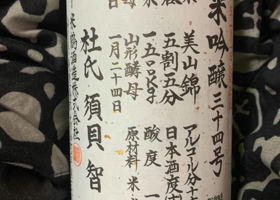 米吟醸三十四号
美山錦 アルコール分十
五割五分 日本酒度
一五〇号 酸度 一
山形酵母 原材料 米
一月二十四日
杜氏 須貝 智
米鶴酒造株式会社